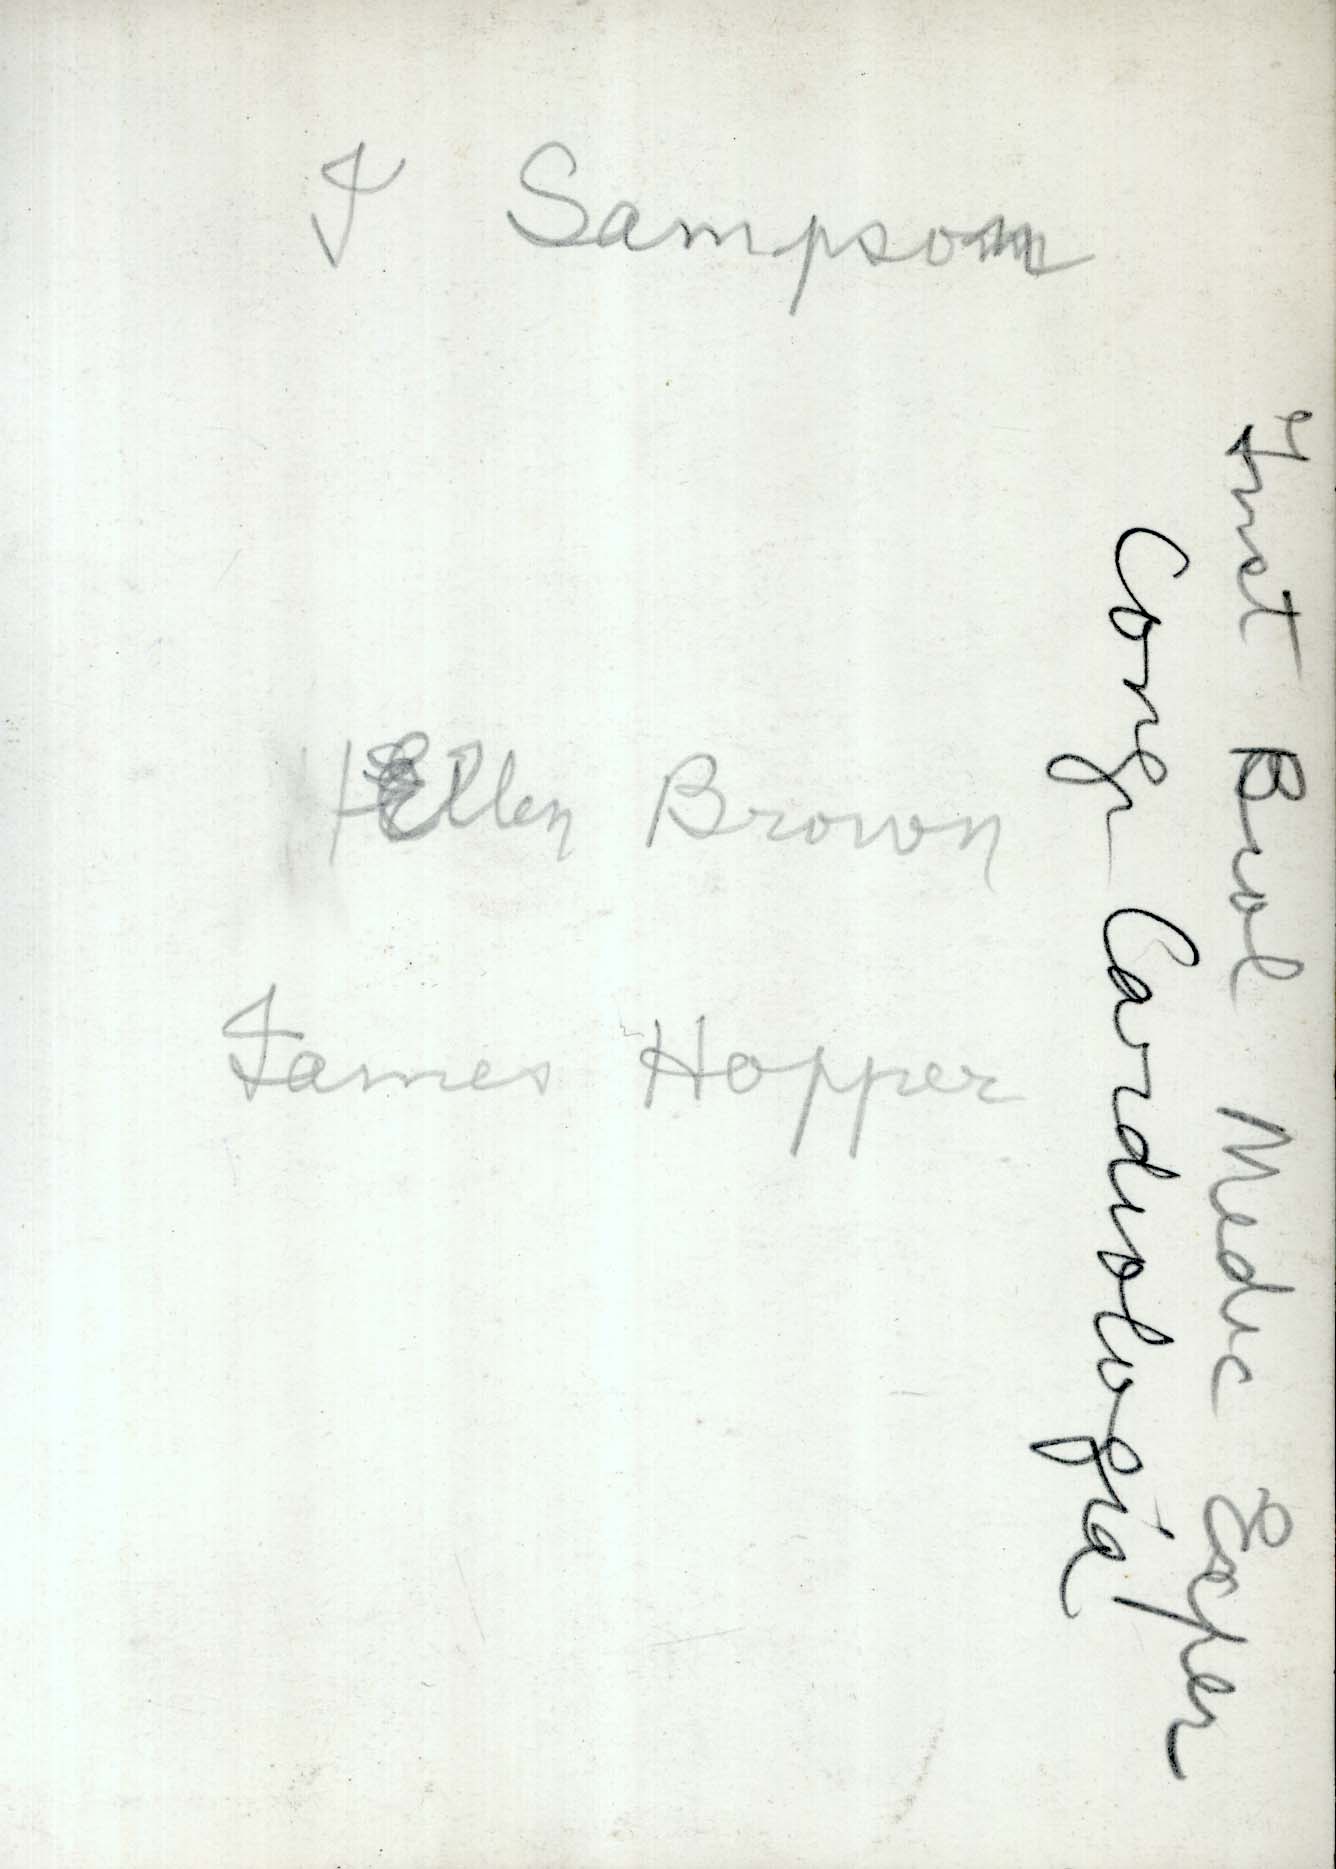 J Sampson
Ellen Brown
James Hopper
Inst Biol Medic Exper
Cong Cardiología